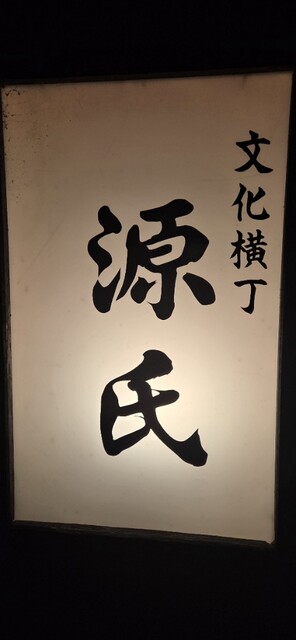 文化横丁
源氏